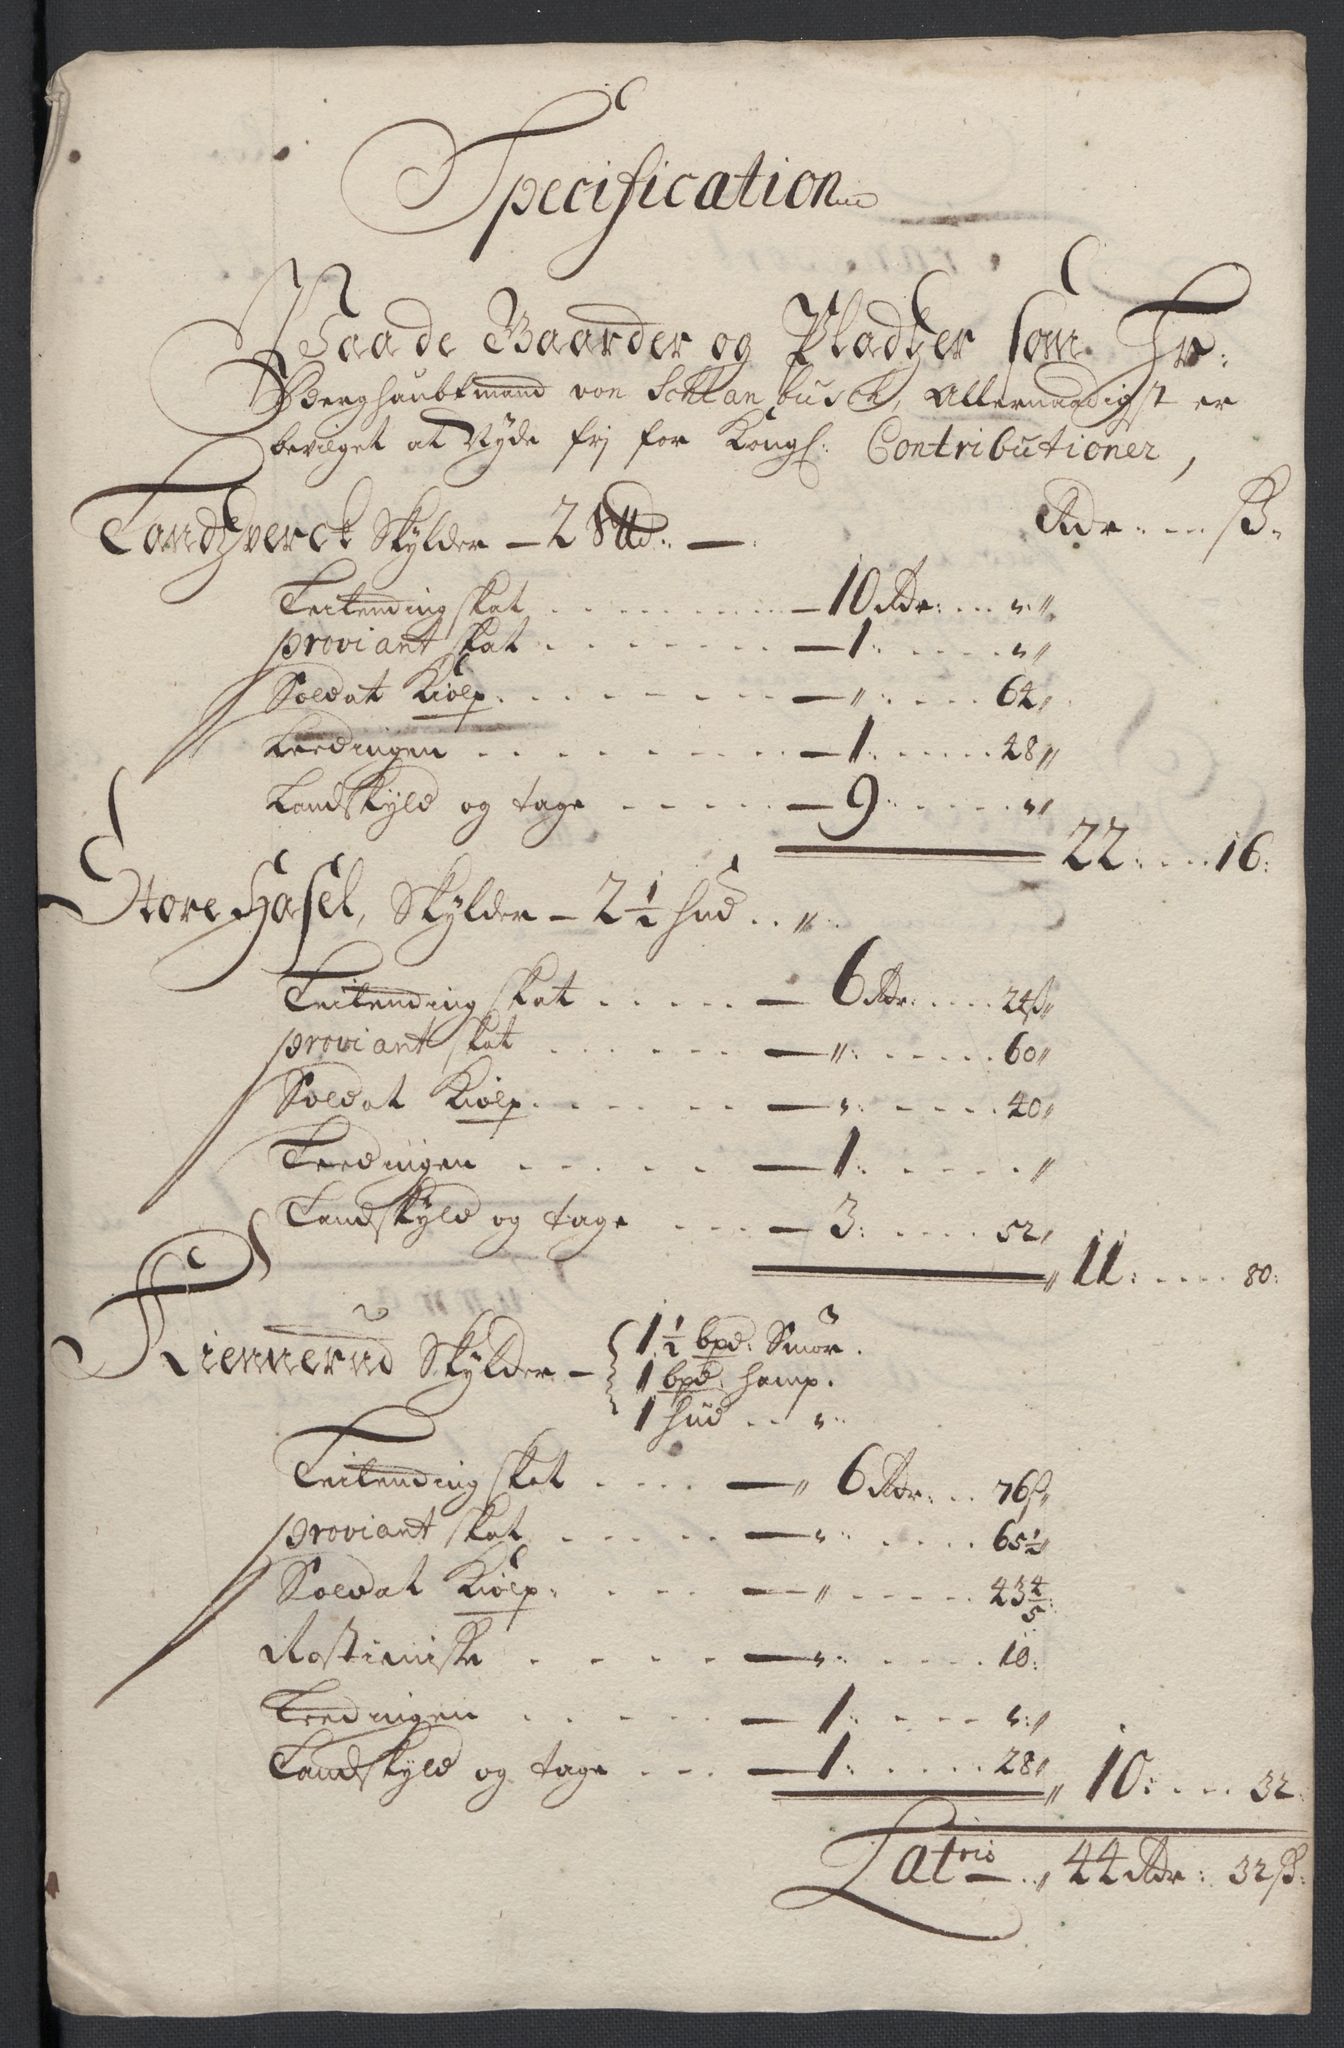 Specification
Paa de Gaarder og Pladtzer som Hr:
Berghaubtmand von Schlanbusch, Allernaadigst er
bevilget at Nyde frj for Kongl: Contributioner,
Rdr: ... ß:
Skylder — 2 Skd: —
Leilending skat — 10 Rdr: „
proviant skat — 1: „
Soldat Kiole — „: 64„
Leedingen — 1: 48„
Landskyld og tage — 9: „
22: 16:
Store Hasel, Skylder — 2 1/2 hud „
Leilending skat — 6 Rdr: 24ß„
proviant skat — „: 60„
Soldat Kiole — „: 40„
Leedingen — 1: „
Landskyld og tage — 3: 52„
„ 11: 80:
Kiennerud Skylder — { 1 1/2 bpd: Smör.
1 bpd: hamp.
1 hud „
Leilending skat — „ 6 Rdr: 76ß„
proviant skat — „: 65 1/2
Soldat Kiole — „ 43 4/5:
Rostieniste — „: 10:
Leedingen — 1: „
Landskyld og tage — 1: 28„
„ 10: 32:
Latris „ 44 Rdr: 32ß: